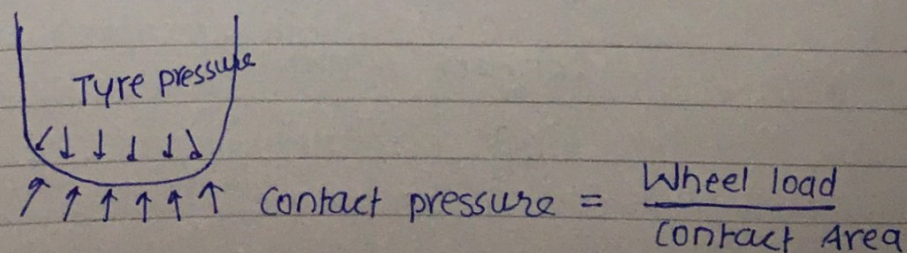 Tyre pressure
Contact pressure = Wheel load
Contact Area